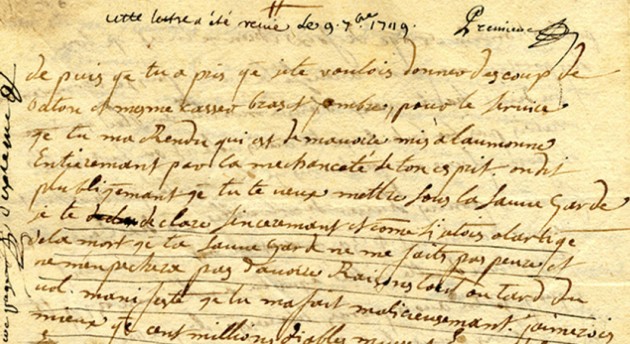 cette lettre a été remise le 9. 7.bre 1749. Premiere
de puis qe tu a pris qe je te voulois donner des coup de
baton et mesme casser bras et jambre, pour le service
qe tu ma Rendu qui est de mavoire mis a laumonne
Entierement par la mechanceté de ton esprit. on dit
publiqemant qe tu te veux mettre sous la sauve garde
je te declare sinceremant et come si jetois a lartiqe
de la mort qe ta sauve gard ne me faits pas peure et
ne menpechera pas davoire Raison tost ou tard du
vol. manifeste qe tu ma fait malicieusemant. jaimerois
mieux qe cent millions diables